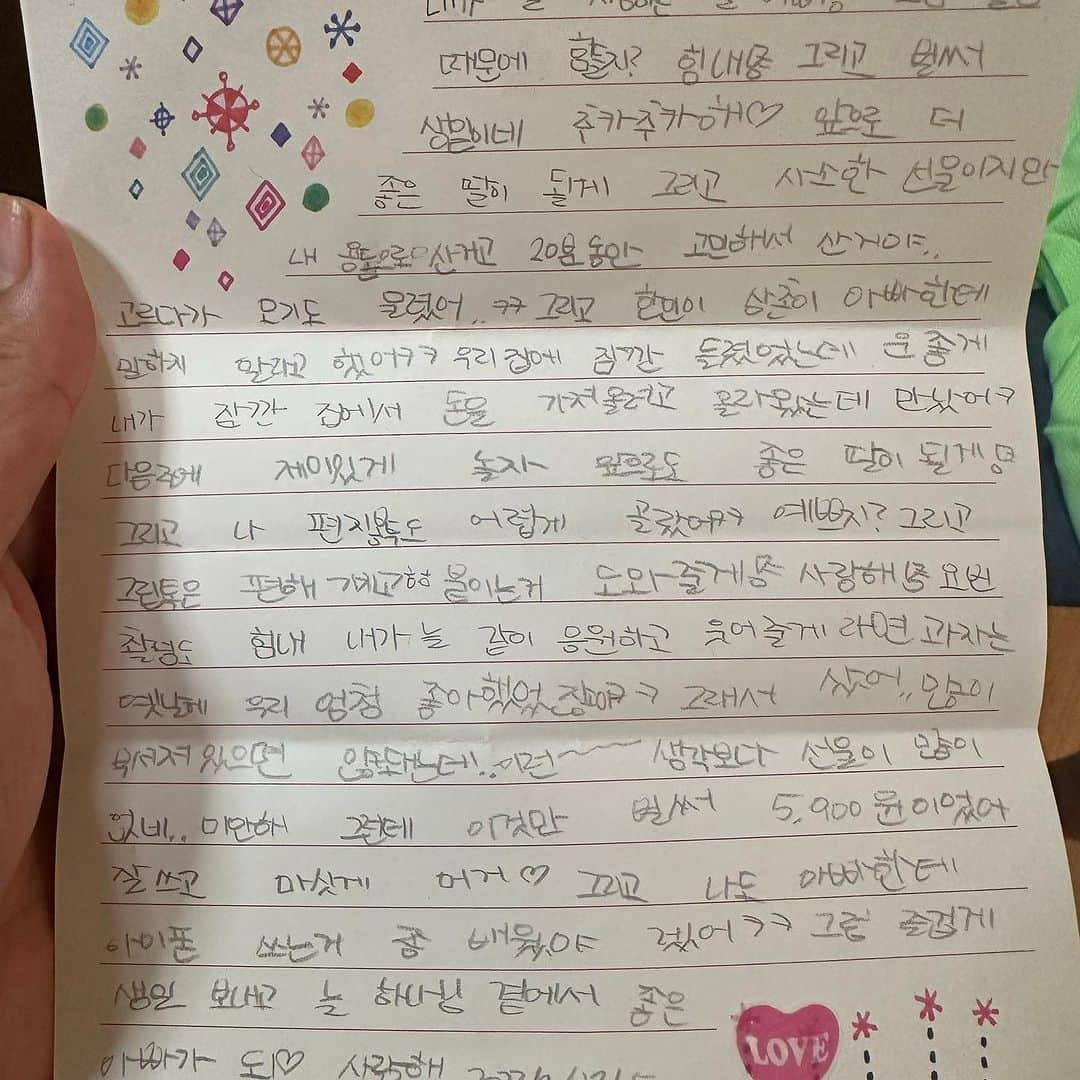 때문에 할지? 힘내 그리고 벌써
생일이네 추카추카해♡ 앞으로 더
좋은 딸이 될게 그리고 사소한 선물이지만
내 용돈으로 산거고 20분동안 고민해서 산거야..
고르다가 모기도 물렸어..ㅋㅋ 그리고 현민이 삼촌이 아빠한테
말하지 말라고 했어ㅋㅋ 우리집에 잠깐 들렸었는데 운좋게
내가 잠깐 집에서 돈을 가져올려고 올라왔는데 만났어ㅋ
다음주에 재미있게 놀자 앞으로도 좋은 딸이 될게
그리고 나 편지봉투도 어렵게 골랐어ㅋㅋ 예쁘지? 그리고
그립톡은 편해 붙이는거 도와줄게 사랑해 요번
촬영도 힘내 내가 늘 같이 응원하고 웃어줄게 라면 과자는
옛날에 우리 엄청 좋아했었잖아ㅋㅋ 그래서 샀어..
부서져있으면 안돼는데..이런~ 생각보다 선물이 많이
없네.. 미안해 그런데 이것만 벌써 5,900원이었어
잘 쓰고 마싯게 머거♡ 그리고 나도 아빠한테
아이폰 쓰는거 좀 배웠야 겠어ㅋㅋ 그럼 즐겁게
생일 보내고 늘 하나님 곁에서 좋은
아빠가 되♡ 사랑해
LOVE